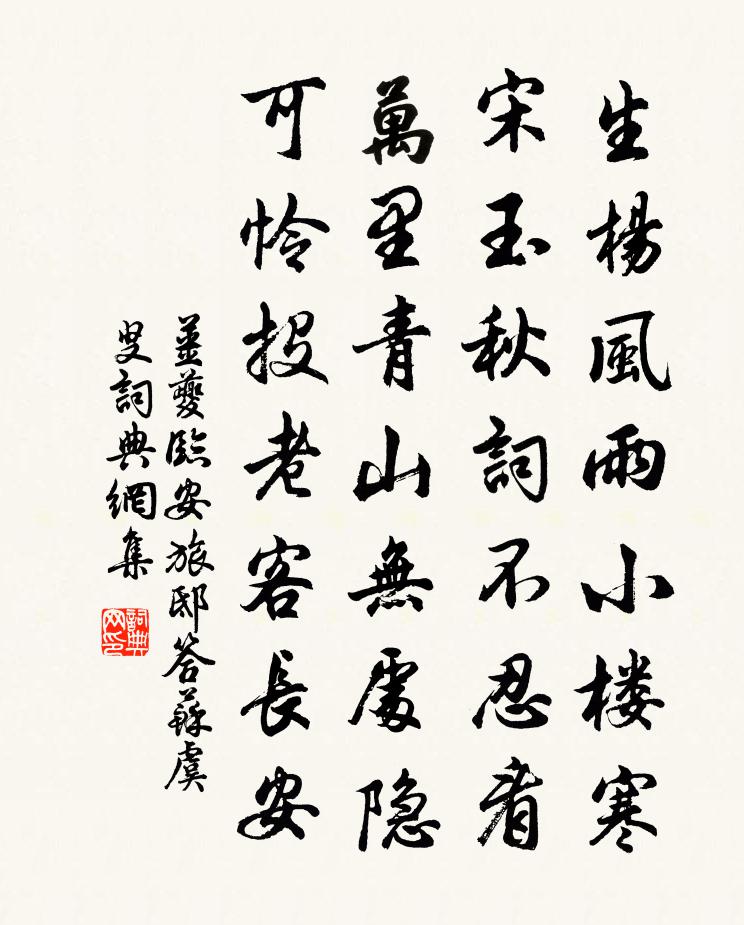 生楊風雨小楼寒
宋玉秋詞不忍看
萬里青山無處隐
可怜投老客長安
薑夔臨安旅邸答蘇虞
叟詞典網集
詞典
网印